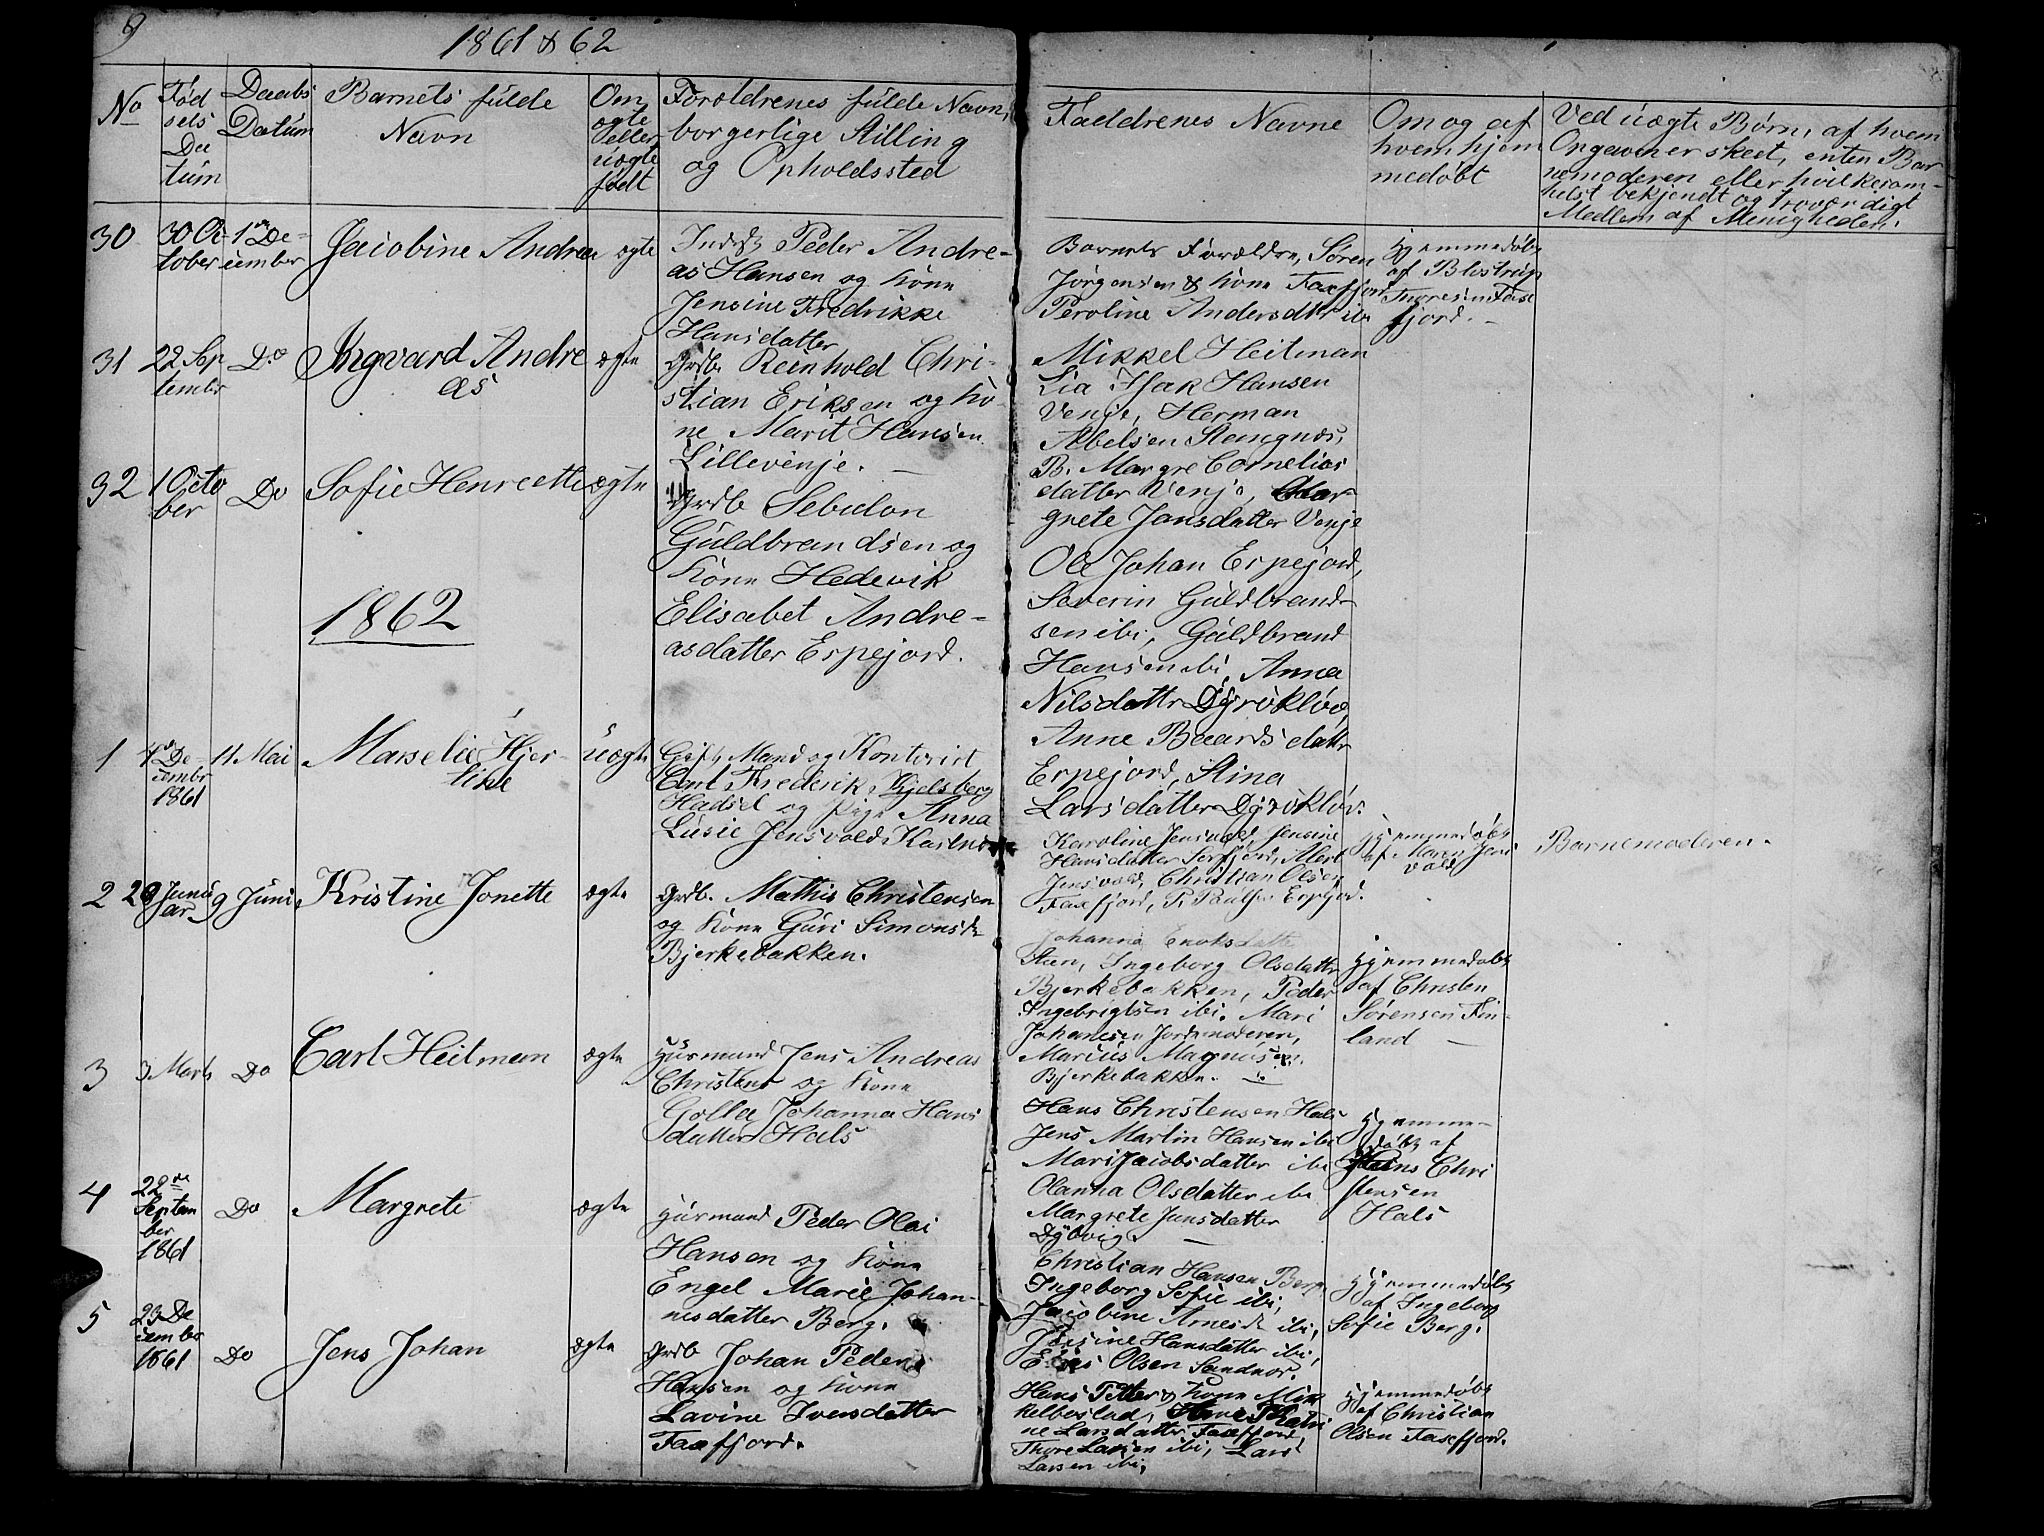 9
1861 & 62
No
Fød
sels
Da
tum
Daabs
Datum
Barnets fulde
Navn
Om
ægte
eller
uægte
født
Forældrenes fulde Navn,
borgerlige Stilling
og Opholdssted
Faddrenes Navne
Om og af
hvem hjem
medøbt
Ved uægte Børn, af hvem
Ongevener skeet, enten Bar
nemoderen eller hvilkesom-
helst bekjendt og troværdigt
Medlem af Menigheden.
30
30 Oc
tober
1ste De-
cember
Jacobine Andrea
ægte
Inderst Peder Andre-
as Hansen og Kone
Jensine Fredrikke
Hansdatter
Barnets Forældre, Søren
Jørgensen & Kone Faxfjord
Peroline Andersdtr ibi
Hjemmedøbt
af Blostrup
Thoresen Faxe
fjord. -
31
22 Sep
tembr
Do
Ingvard Andre
as
ægte
Grdb. Reinhold Chri-
stian Eriksen og Ko-
ne Marit Hansen
Lillevenje. -
Mikkel Heitman
Lia Isak Hansen
Venje, Herman
Abelsen Stangnes,
B. Margre Cornelias
datter Venje, Mar-
grete Jansdatter Venje
32
1 Octo
ber
Do
Sofie Henreette
ægte
Grdb Sebulon
Guldbrandsen og
Kone Hedevik
Elisabet Andre-
asdatter Erpejord.
Ole Johan Erpejord,
Severin Guldbrand-
sen ibi, Guldbrand
Hansen ibi, Anna
Nilsdattr Dyrøkløv,
Anne Baards dattr
Erpejord, Stina
Lars datter Dyrøkløv.
1862
1
4de De-
cembr
1861
11 Mai
Marselie Hjer-
tike
uægte
Gift Mand og Kontorist
Carl Frederik Kjelsberg
Hadsel og Pige Anna
Lusie Jensvold Kastnes
Karoline Jensvold, Jensine
Hansdatter Sørfjord, Albert
Jensvold, Christian Olsen
Faxefjord, P. Paulsen Erpejord.
Hjemmedøbt
af Maren Jens
vold
Barnemoderen.
2
22 Janu
ar
9 Juni
Kristine Jonette
ægte
Grdb. Mathis Christensen
og Kone Guri Simonsdr
Bjerkebakken.
Johanna Enoksdatter
Steen, Ingeborg Olsdatter
Bjerkebakken, Peder
Ingebrigtsen ibi. Mari
Johannesen Jordemoderen,
Marius Magnusen
Bjerkebakken.
Hjemmedøbt
af Christen
Sørensen Fin-
land -
3
3 Marts
Do
Carl Heitman
ægte
Husmand Jens Andreas
Christens og Kone
Golla Johanna Hans
datter Hals
Hans Christensen Hals
Jens Martin Hansen ibi
Mari Jacobsdatter ibi
Olanna Olsdatter ibi
Margrete Jansdatter
Dybvig. -
Hjemme-
døbt af
Hans Chri
stensen
Hals
4
22de
Septem
ber
1861
Do
Margrete
ægte
Husmand Peder Olai
Hansen og Kone
Engel Marie Johan-
nesdatter Berg.
Christian Hansen Berg,
Ingeborg Sofie ibi,
Jacobine Arnesdr ibi,
Jensine Hansdatter ibi,
Olsen Sandnor.
Hjemmedøbt
af Ingeborg
Sofie Berg.
5
23 De
cember
1861
Do
Jens Johan
ægte
Grdb Johan Peder
Hansen og Kone
Lavine Iversdatter
Faxfjord.
Hans Petter & Kone Mik
kelbostad, Katri
ne Larsdatter Faxefjord,
Thore Larsen ibi, Lars
Larsen ibi,
Hjemmedøbt
af Christian
Olsen Faxefjord.